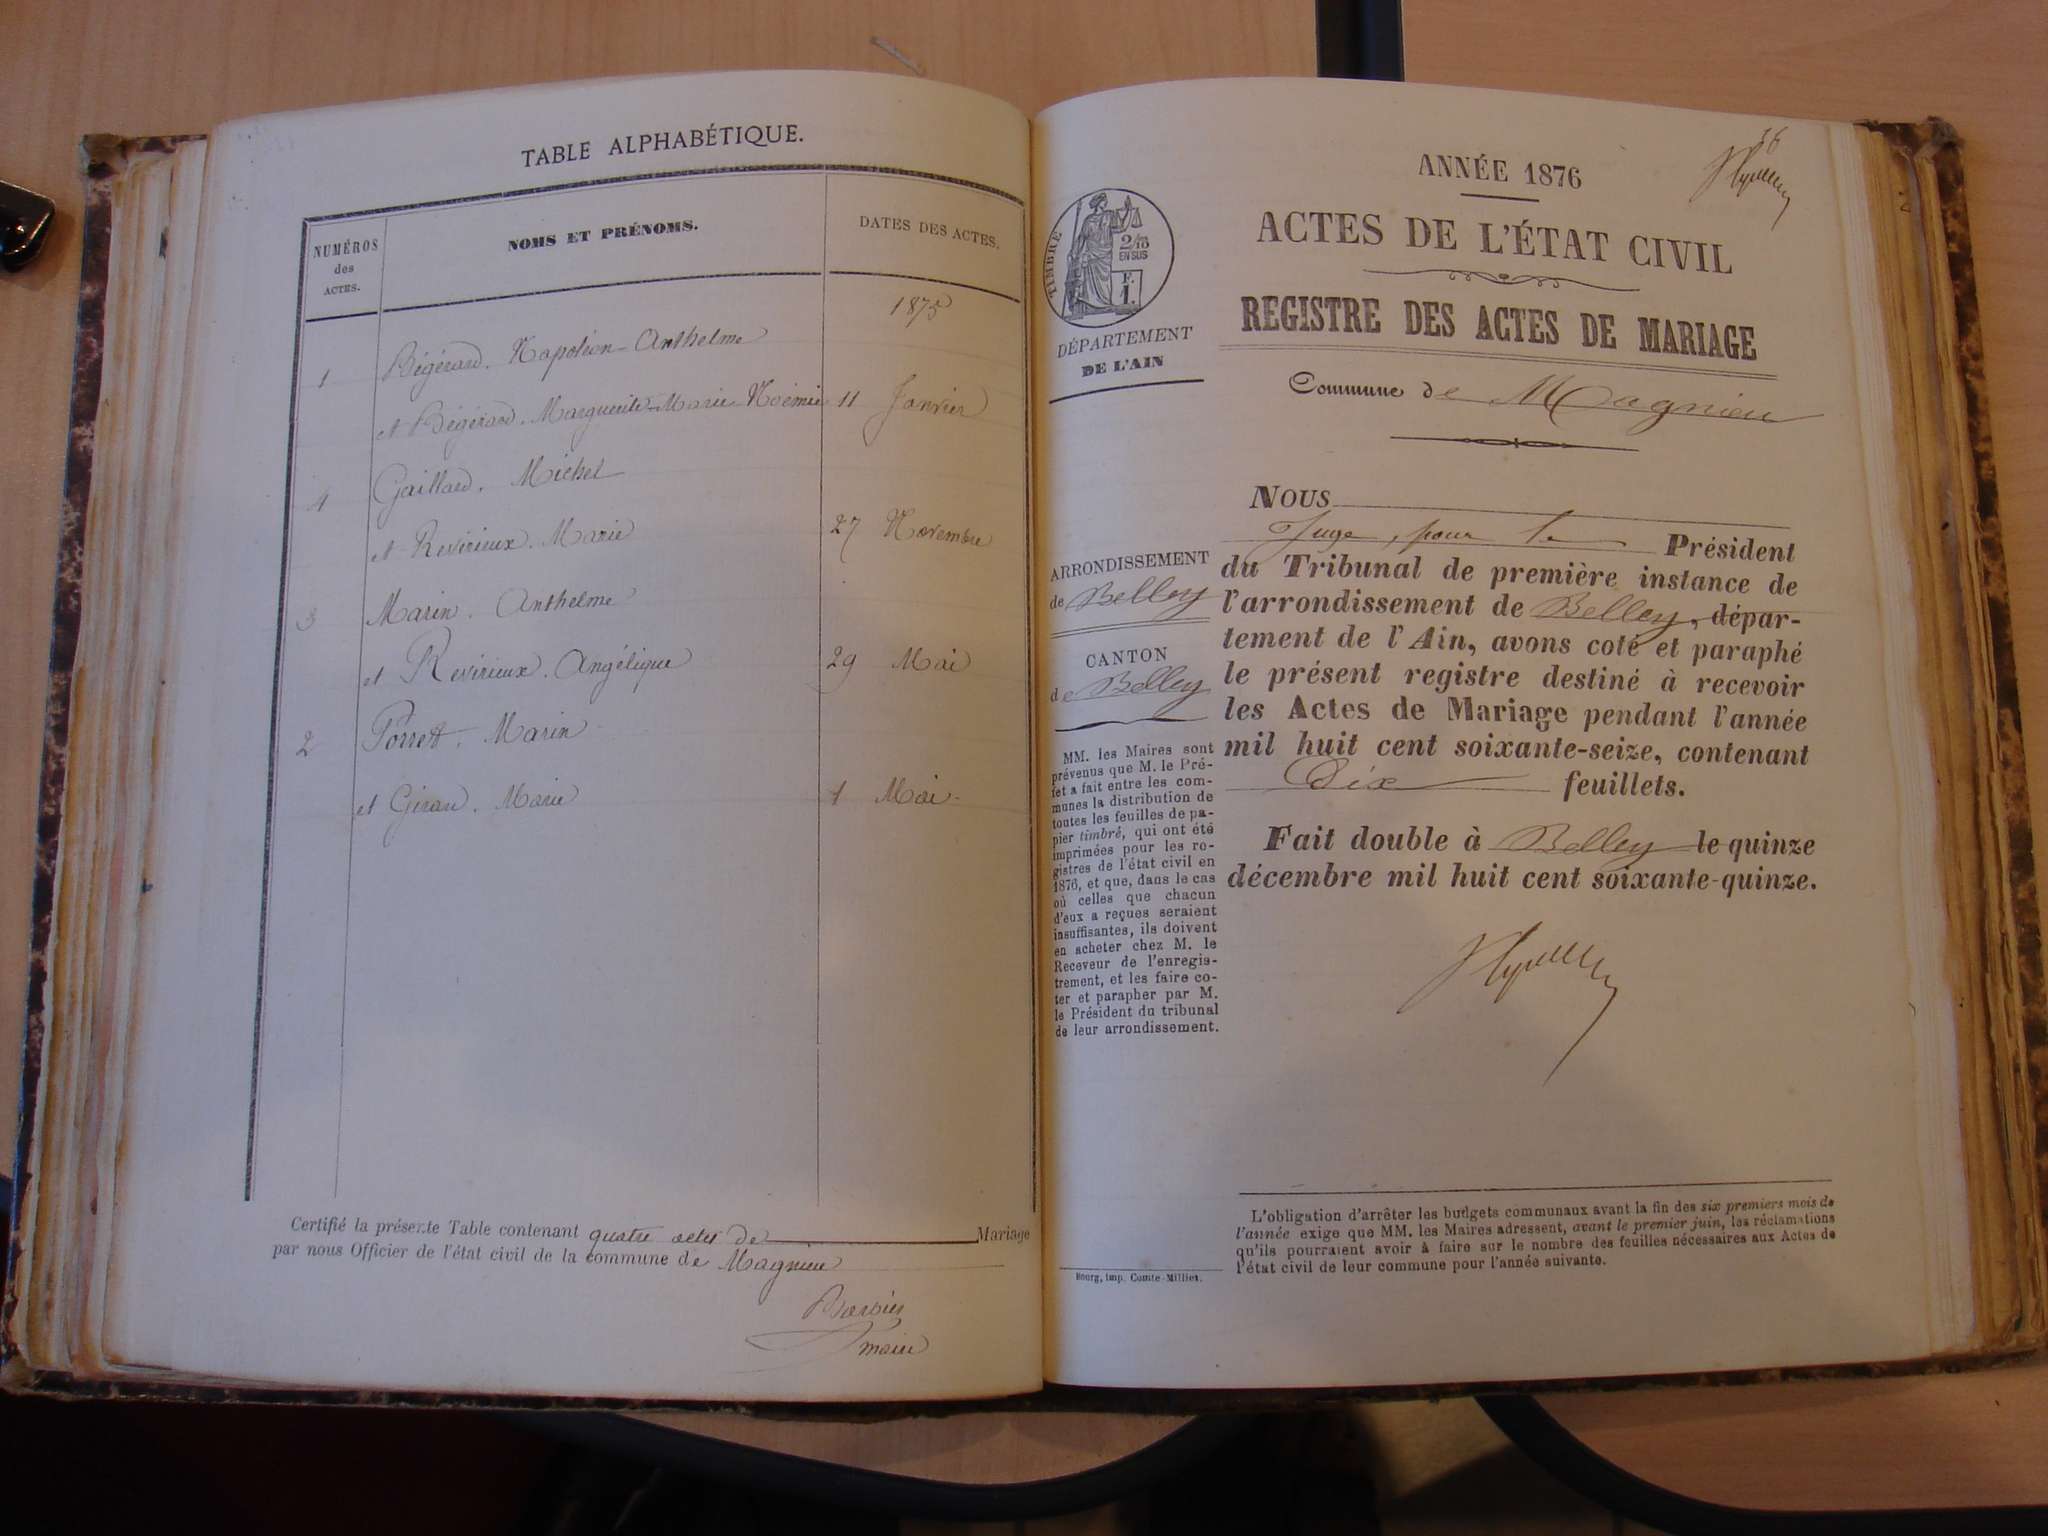 TABLE ALPHABÉTIQUE.
NUMÉROS
des
ACTES.
NOMS ET PRÉNOMS.
DATES DES ACTES.
1875
1 Bégérard. Napoléon-Anthelme
et Bégérard. Marguerite-Marie-Noémie 11 Janvier
4 Gaillard. Michel
et Revirieux. Marie 27 Novembre
3 Marin. Anthelme
et Revirieux. Angélique 29 Mai
2 Porret. Marin
et Giran. Marie 1 Mai.
Certifié la présente Table contenant quatre actes de Mariage
par nous Officier de l'état civil de la commune de Magnieu
Barbier
maire
ANNÉE 1876
36
TIMBRE
2/10
EN SUS
F.
1.
ACTES DE L'ÉTAT CIVIL
REGISTRE DES ACTES DE MARIAGE
DÉPARTEMENT
DE L'AIN
Commune de Magnieu
ARRONDISSEMENT
de Belley
CANTON
de Belley
MM. les Maires sont
prévenus que M. le Pré-
fet a fait entre les com-
munes la distribution de
toutes les feuilles de pa-
pier timbré, qui ont été
imprimées pour les re-
gistres de l'état civil en
1876, et que, dans le cas
où celles que chacun
d'eux a reçues seraient
insuffisantes, ils doivent
en acheter chez M. le
Receveur de l'enregis-
trement, et les faire co-
ter et parapher par M.
le Président du tribunal
de leur arrondissement.
NOUS
Juge, pour le Président
du Tribunal de première instance de
l'arrondissement de Belley, dépar-
tement de l'Ain, avons coté et paraphé
le présent registre destiné à recevoir
les Actes de Mariage pendant l'année
mil huit cent soixante-seize, contenant
Dix feuillets.
Fait double à Belley le quinze
décembre mil huit cent soixante-quinze.
L'obligation d'arrêter les budgets communaux avant la fin des six premiers mois de
l'année exige que MM. les Maires adressent, avant le premier juin, les réclamations
qu'ils pourraient avoir à faire sur le nombre des feuilles nécessaires aux Actes de
l'état civil de leur commune pour l'année suivante.
Bourg, imp. Comte-Milliet.